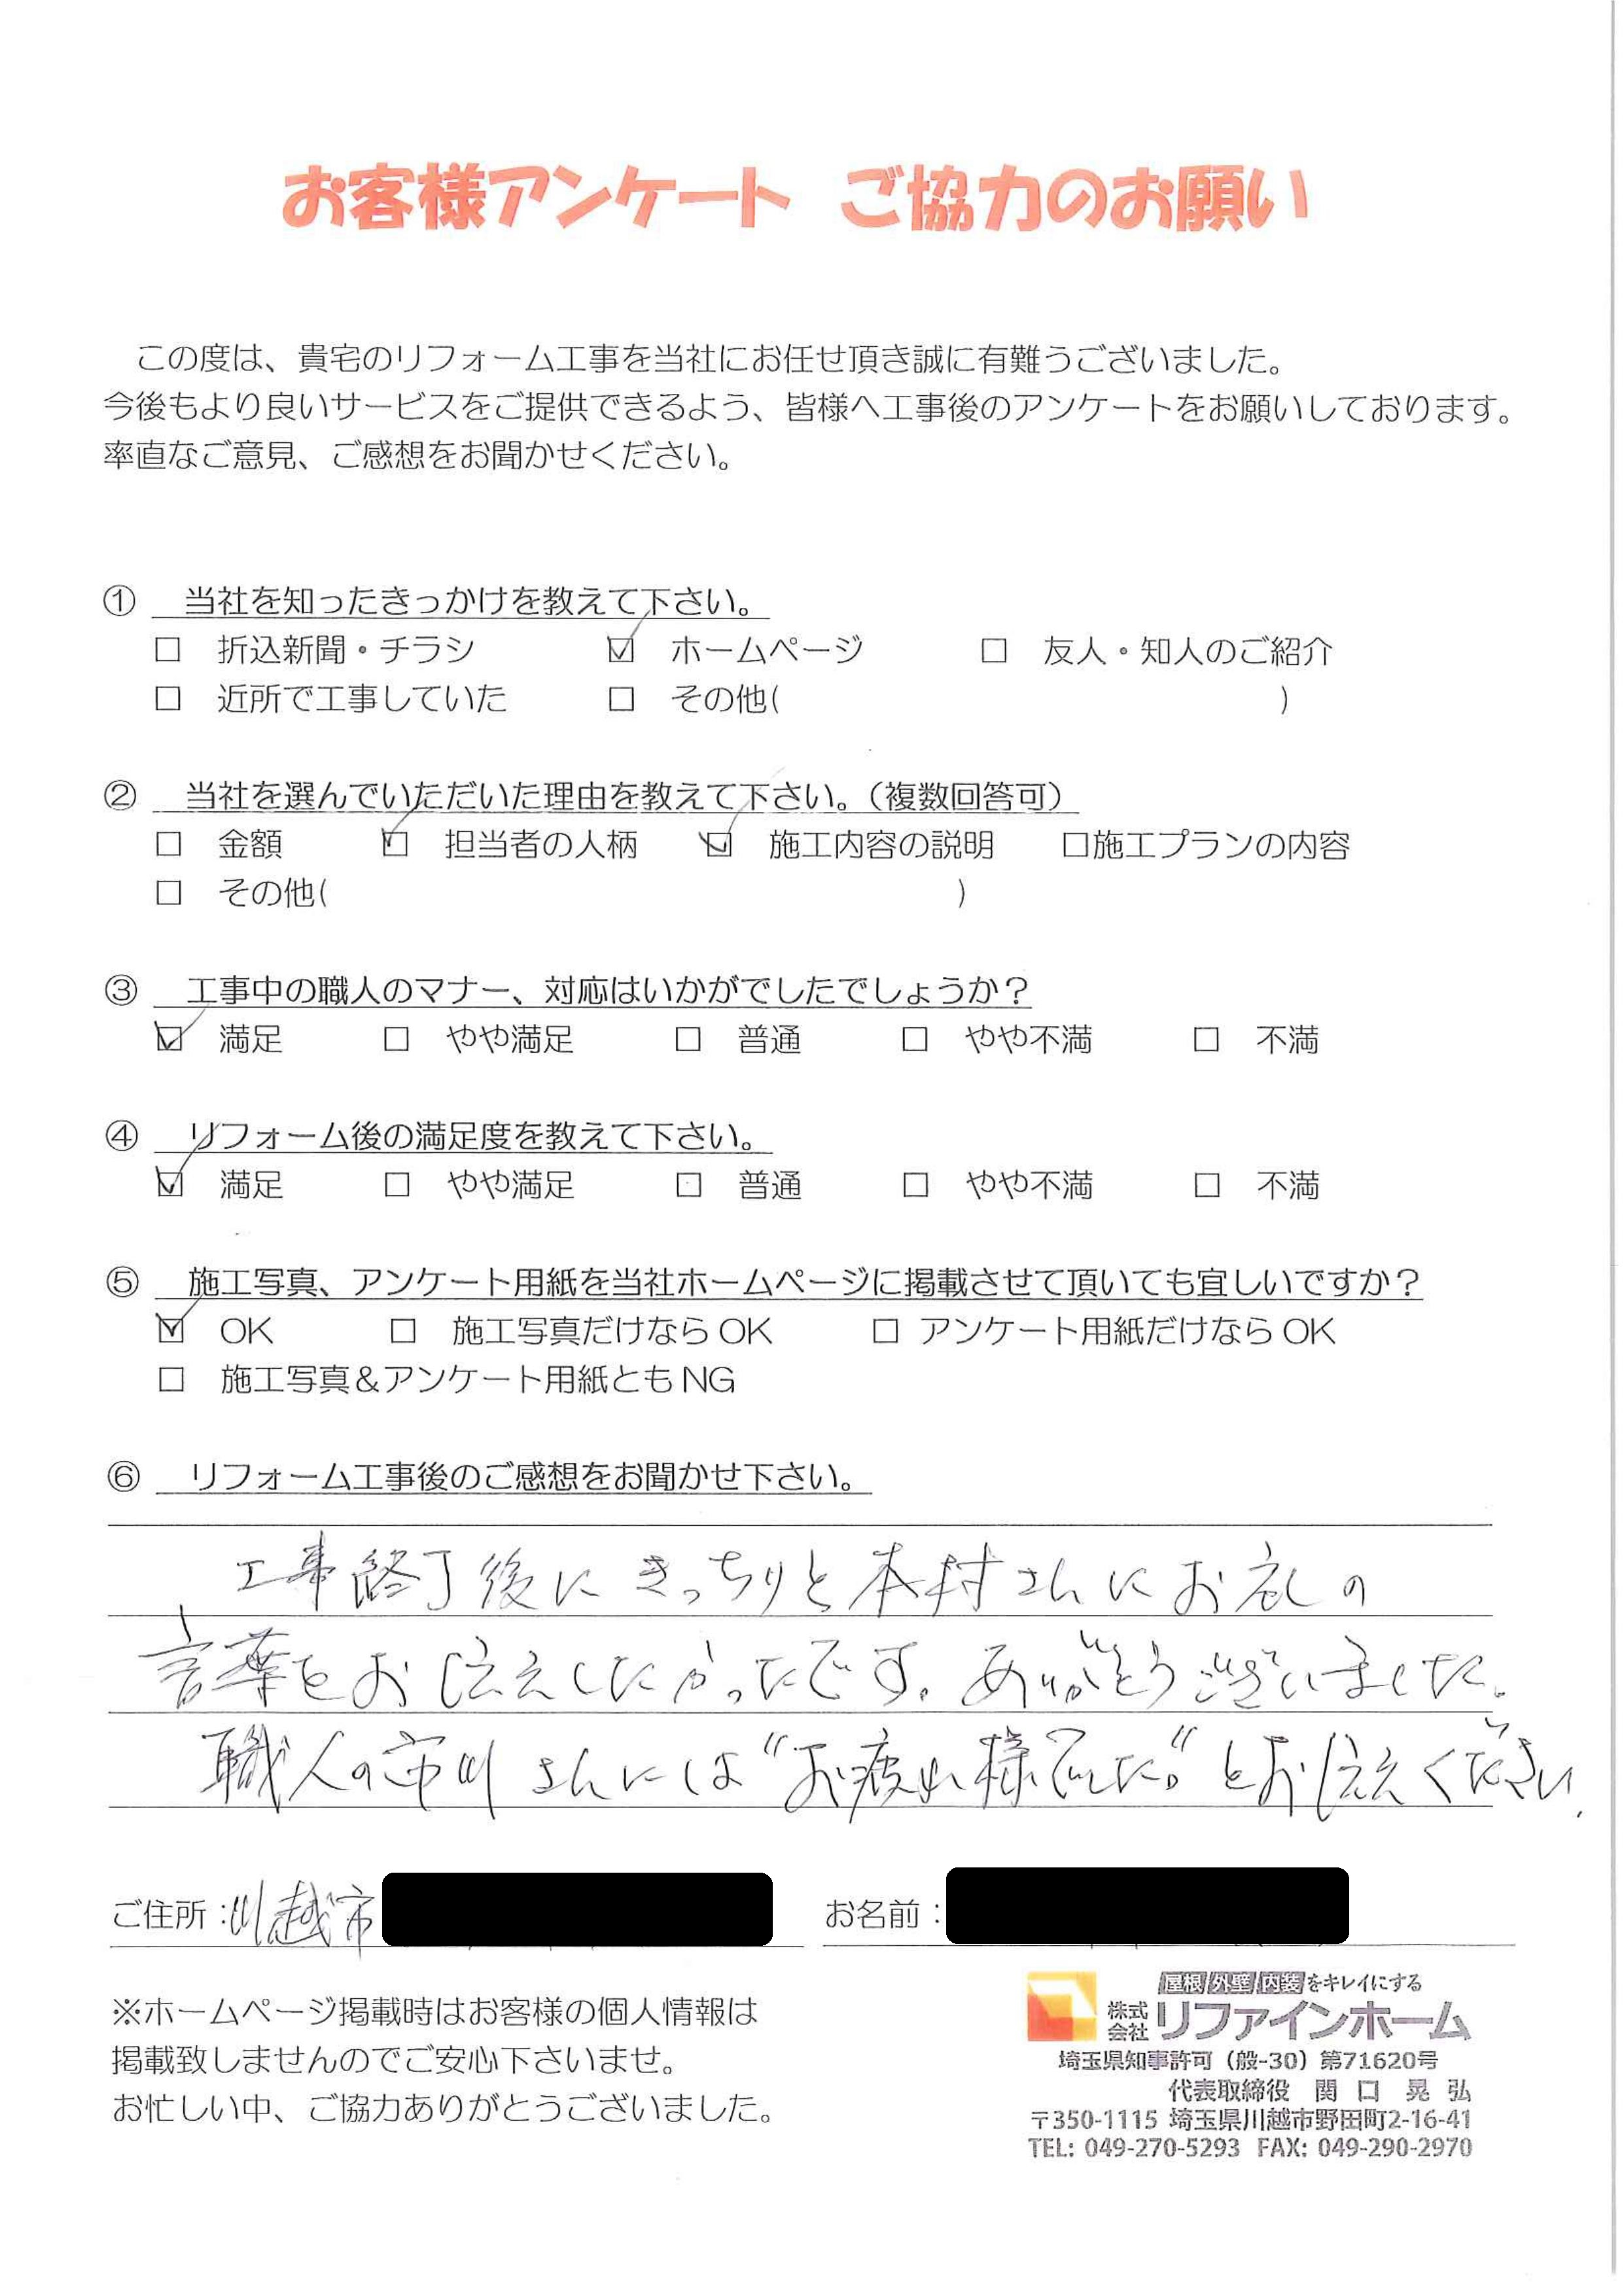 お客様アンケート ご協力のお願い
この度は、貴宅のリフォーム工事を当社にお任せ頂き誠に有難うございました。
今後もより良いサービスをご提供できるよう、皆様へ工事後のアンケートをお願いしております。
率直なご意見、ご感想をお聞かせください。
① 当社を知ったきっかけを教えて下さい。
□ 折込新聞・チラシ ☑ ホームページ □ 友人・知人のご紹介
□ 近所で工事していた □ その他( )
② 当社を選んでいただいた理由を教えて下さい。（複数回答可）
□ 金額 ☑ 担当者の人柄 ☑ 施工内容の説明 □施工プランの内容
□ その他( )
③ 工事中の職人のマナー、対応はいかがでしたでしょうか？
☑ 満足 □ やや満足 □ 普通 □ やや不満 □ 不満
④ リフォーム後の満足度を教えて下さい。
☑ 満足 □ やや満足 □ 普通 □ やや不満 □ 不満
⑤ 施工写真、アンケート用紙を当社ホームページに掲載させて頂いても宜しいですか？
☑ OK □ 施工写真だけなら OK □ アンケート用紙だけなら OK
□ 施工写真＆アンケート用紙とも NG
⑥ リフォーム工事後のご感想をお聞かせ下さい。
工事終了後にきっちりと本村さんにお礼の
言葉をお伝えしたかったです。ありがとうございました。
職人の市川さんには“お疲れ様でした。”とお伝えください.
ご住所：川越市 お名前：
※ホームページ掲載時はお客様の個人情報は
掲載致しませんのでご安心下さいませ。
お忙しい中、ご協力ありがとうございました。
屋根/外壁/内装をキレイにする
株式会社 リファインホーム
埼玉県知事許可（般-30）第71620号
代表取締役 関 口 晃 弘
〒350-1115 埼玉県川越市野田町2-16-41
TEL: 049-270-5293 FAX: 049-290-2970